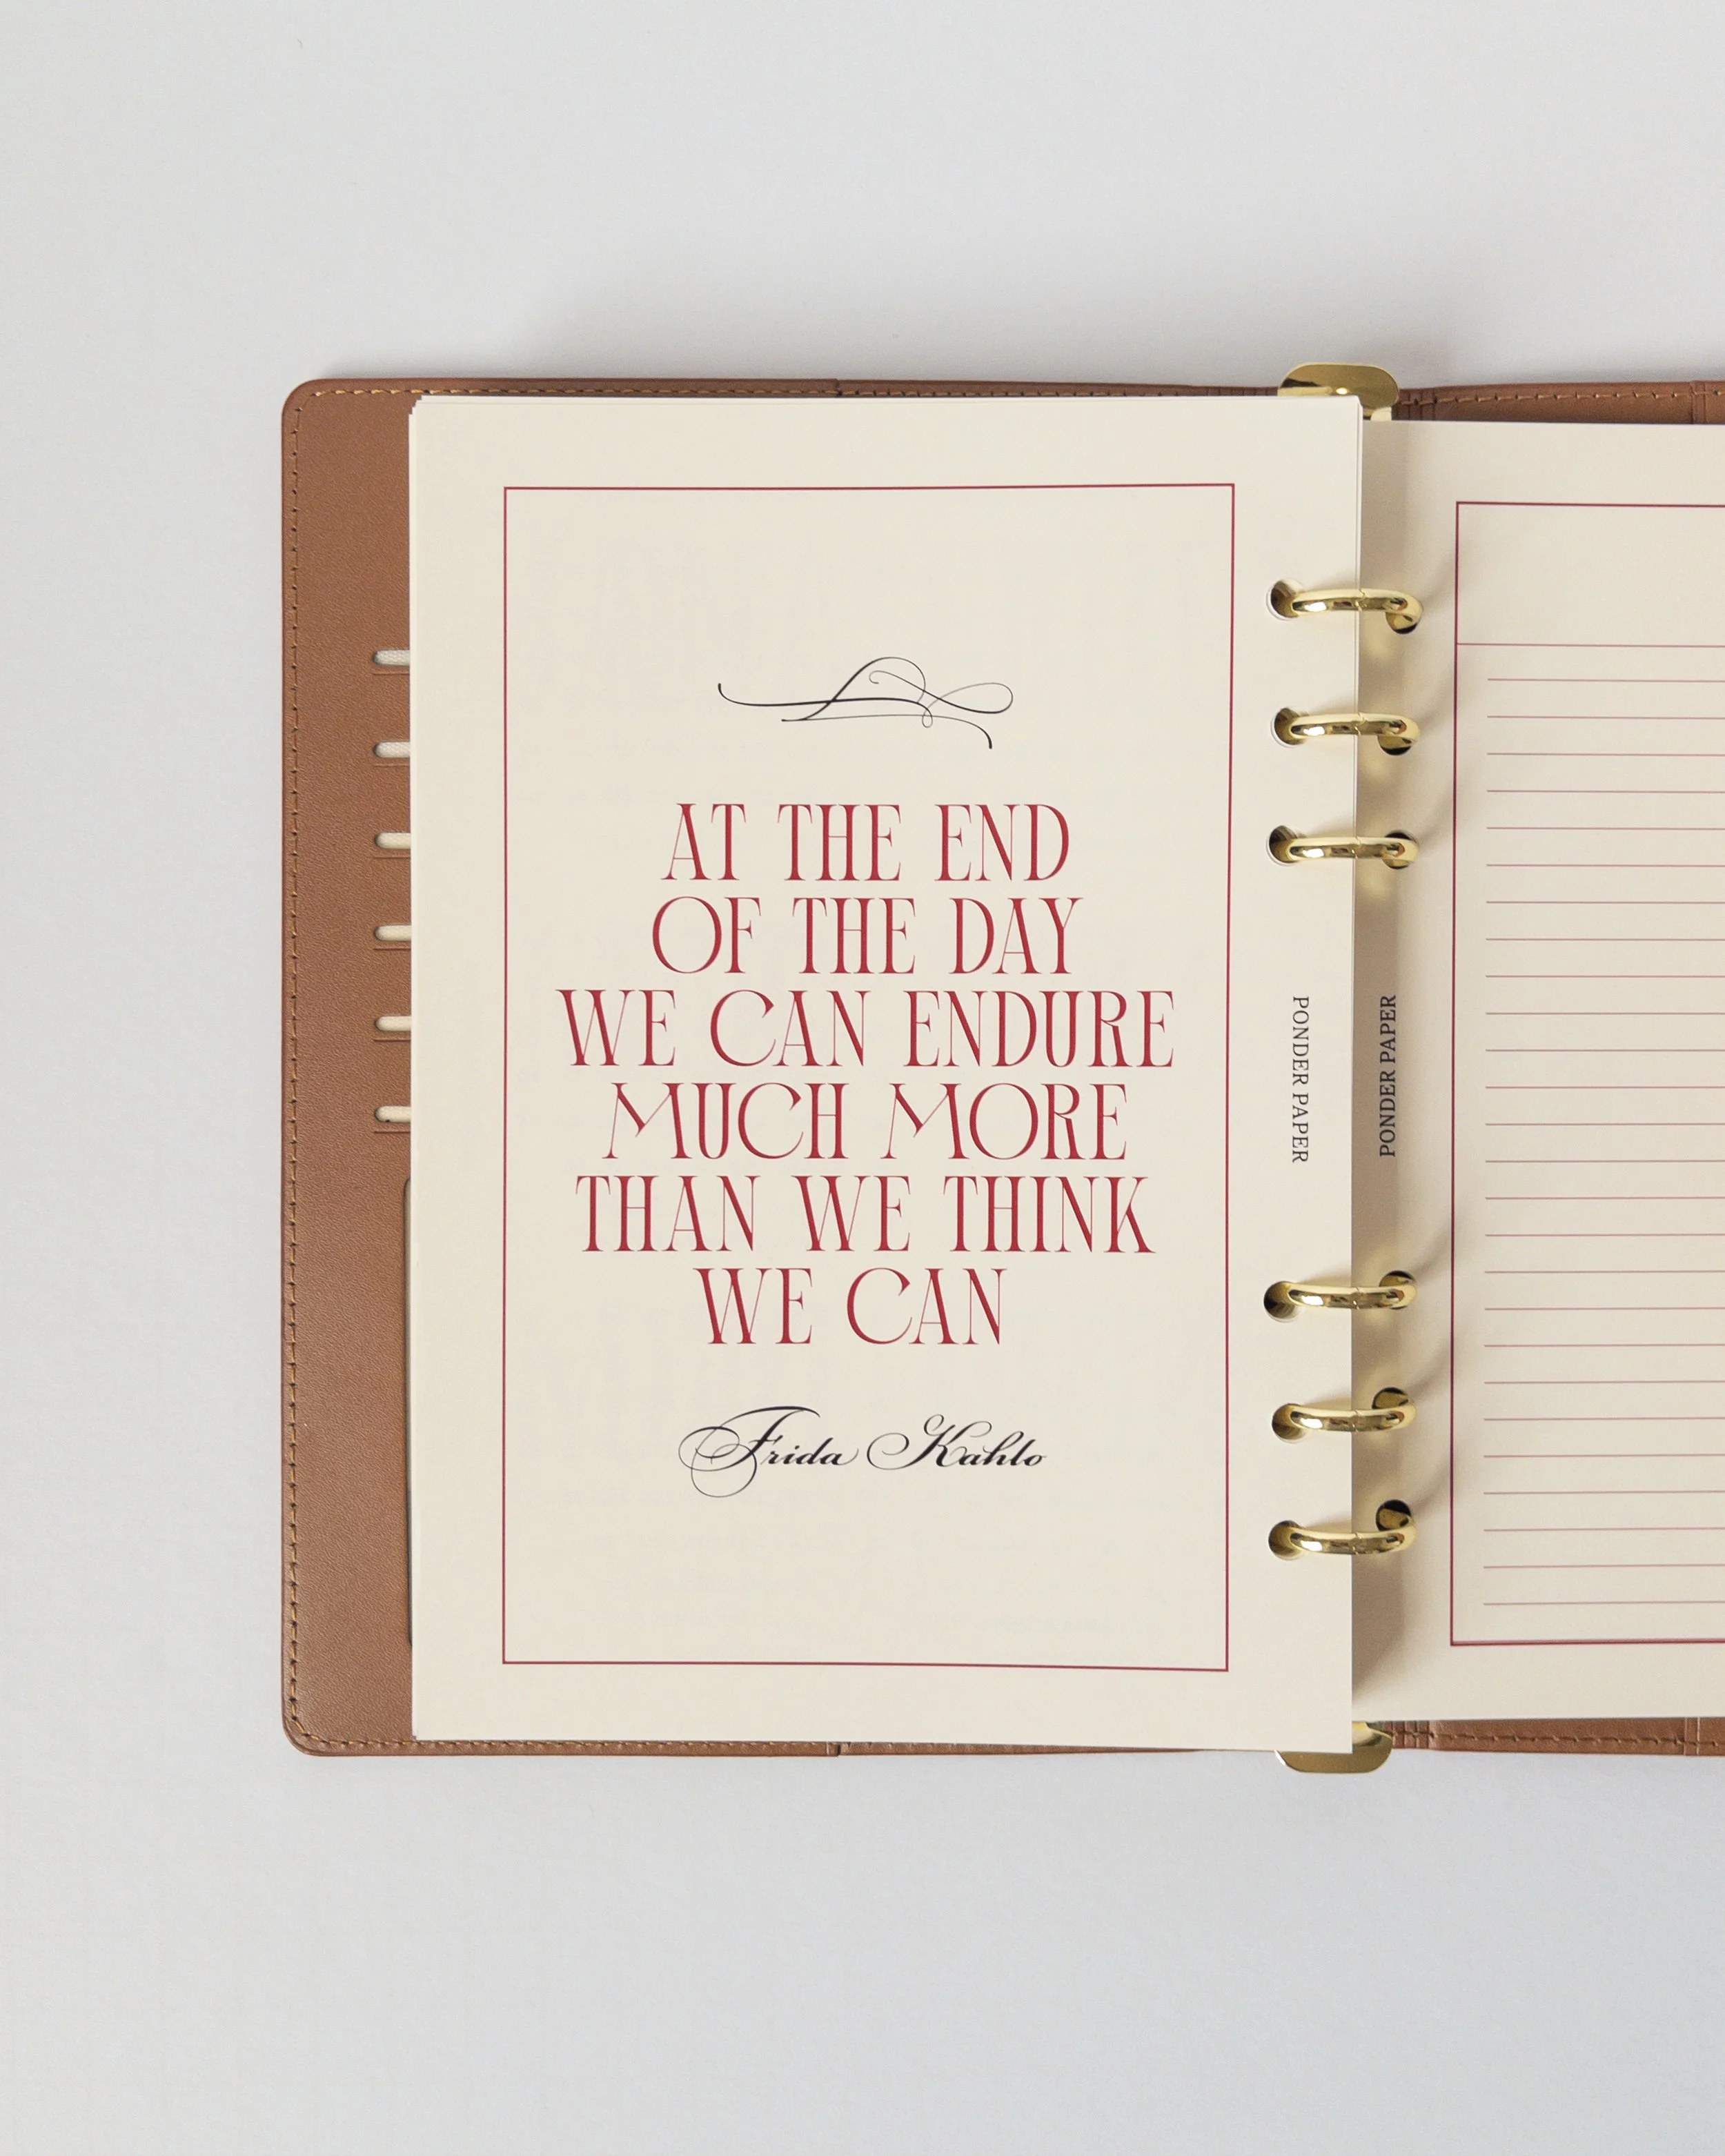 AT THE END
OF THE DAY
WE CAN ENDURE
MUCH MORE
THAN WE THINK
WE CAN
Frida Kahlo
PONDER PAPER
PONDER PAPER